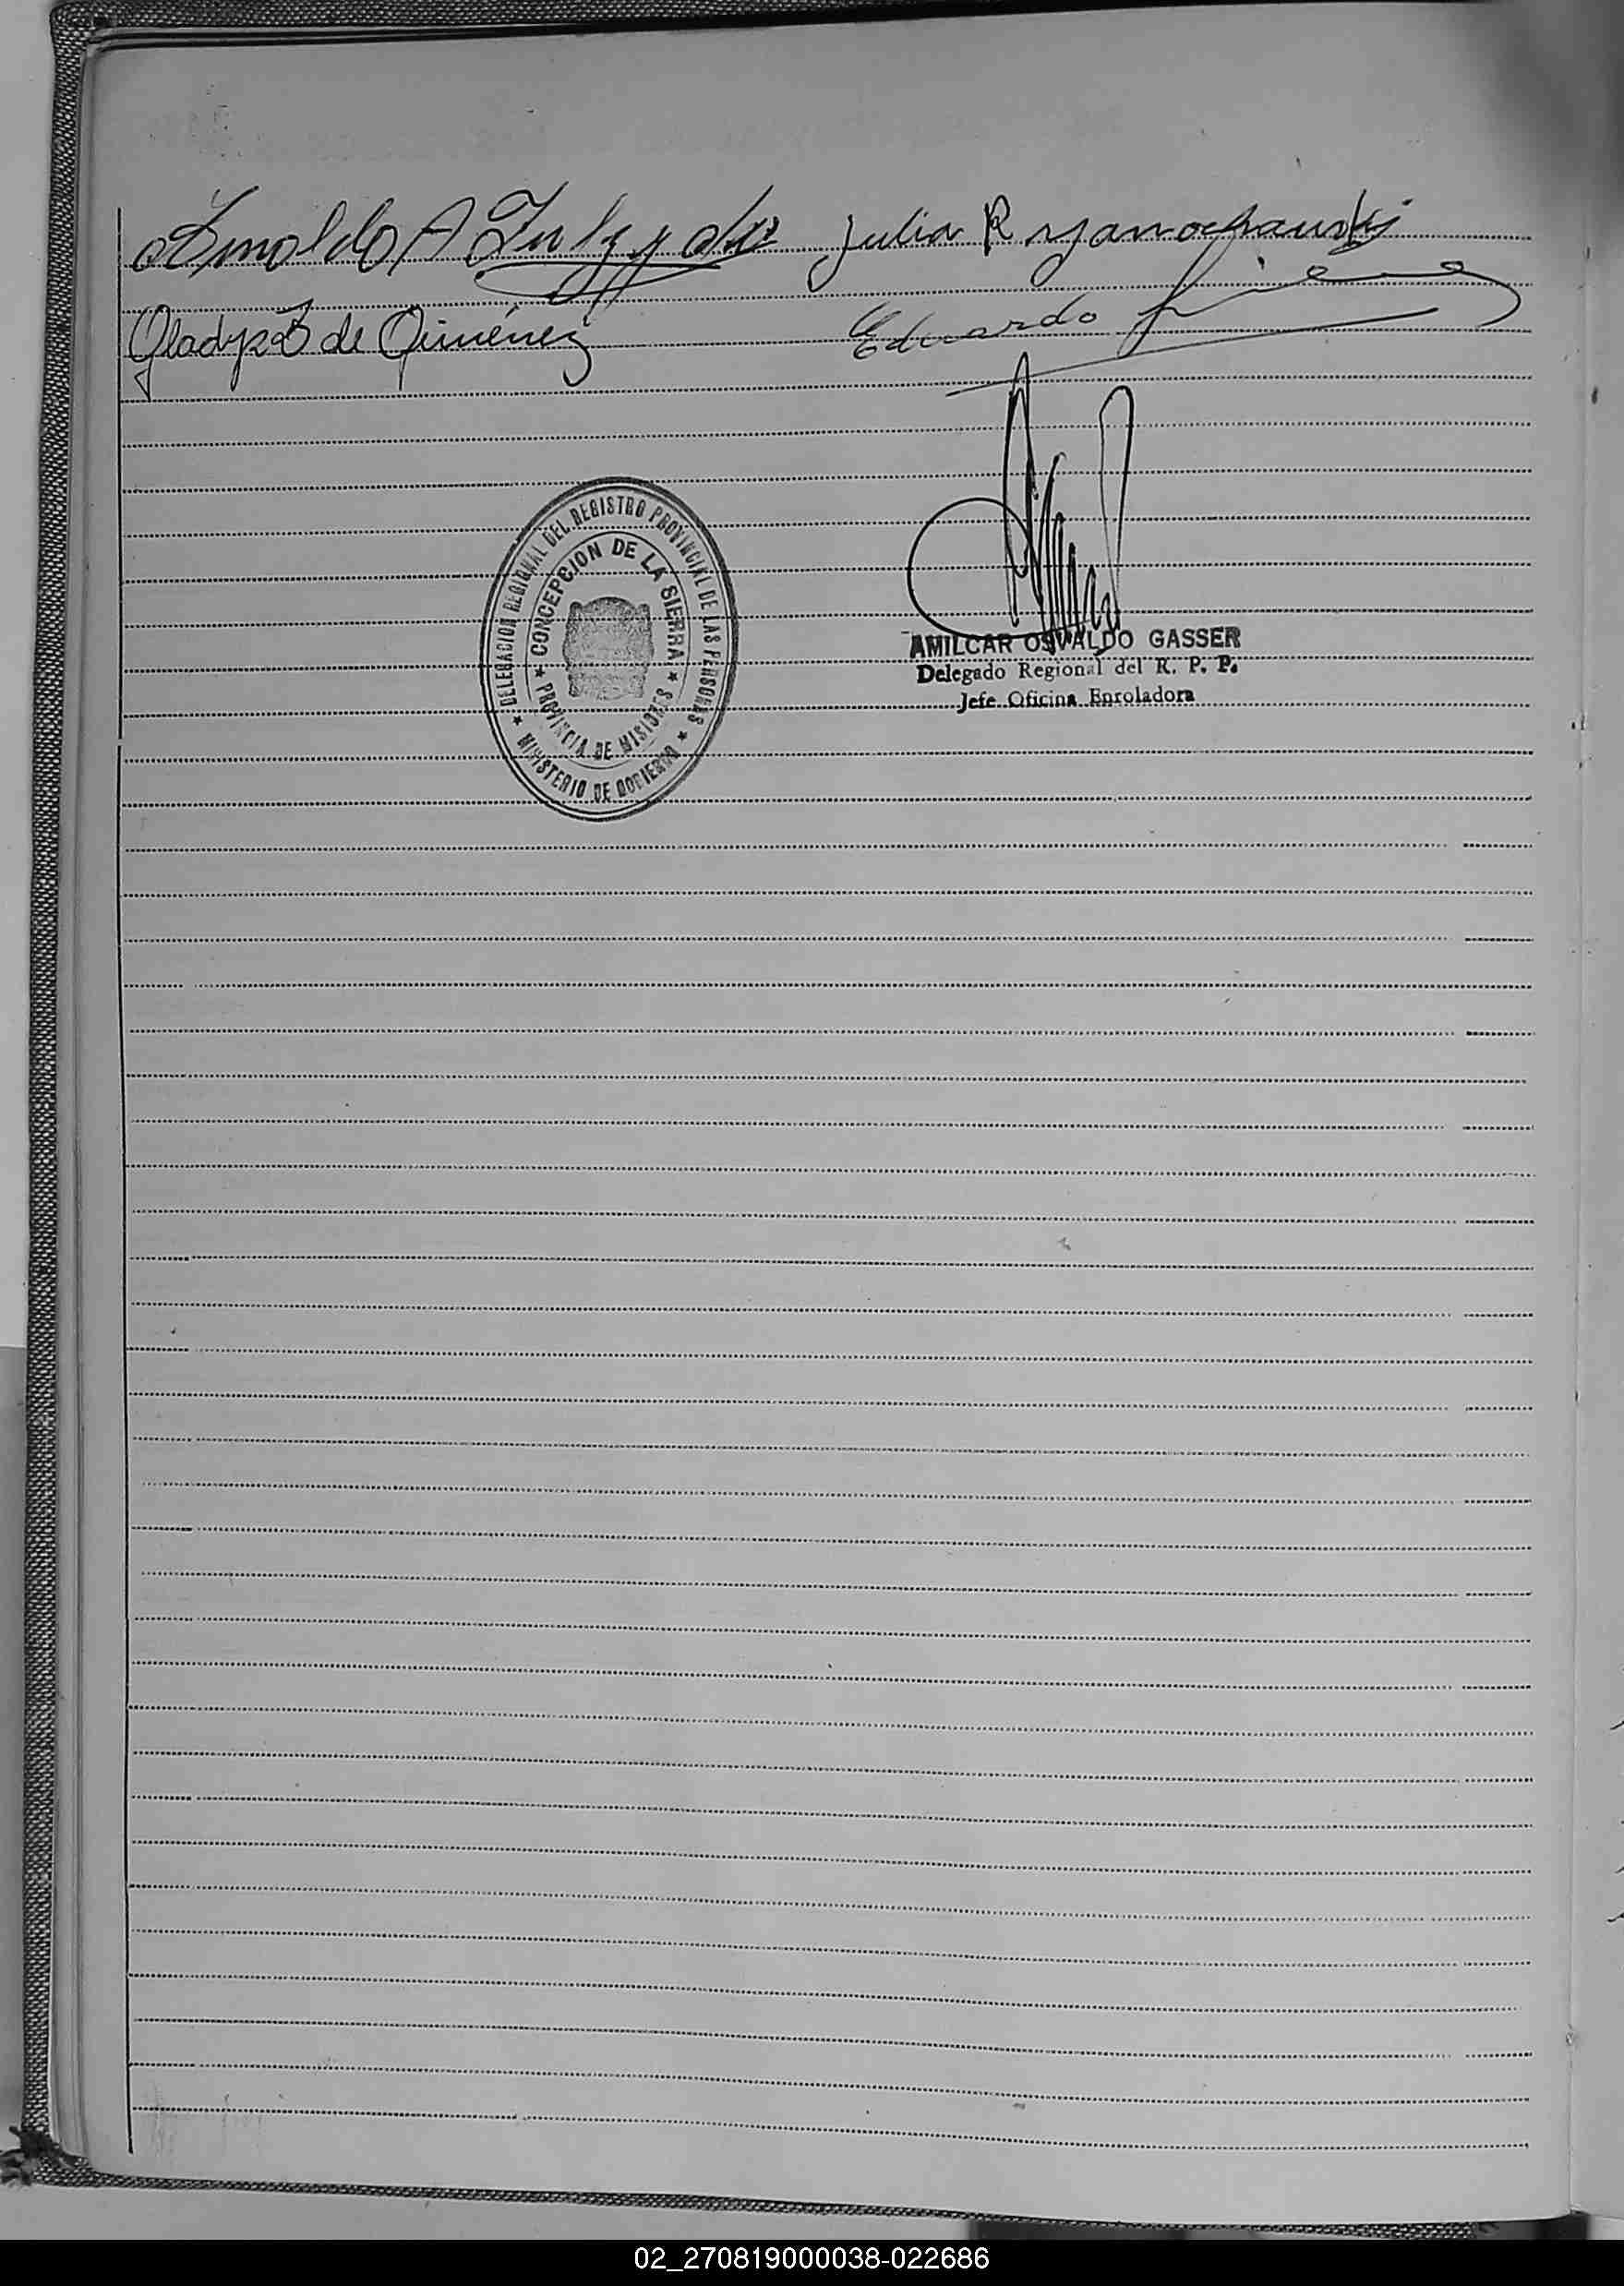 Arnoldo A Julia R
Gladys Z de Giménez Eduardo
DELEGACION REGIONAL DEL REGISTRO PROVINCIAL DE LAS PERSONAS
★ MINISTERIO DE GOBIERNO ★
★ CONCEPCION DE LA SIERRA ★
PROVINCIA DE MISIONES
AMILCAR OSVALDO GASSER
Delegado Regional del R. P. P.
Jefe Oficina Enroladora
02_270819000038-022686